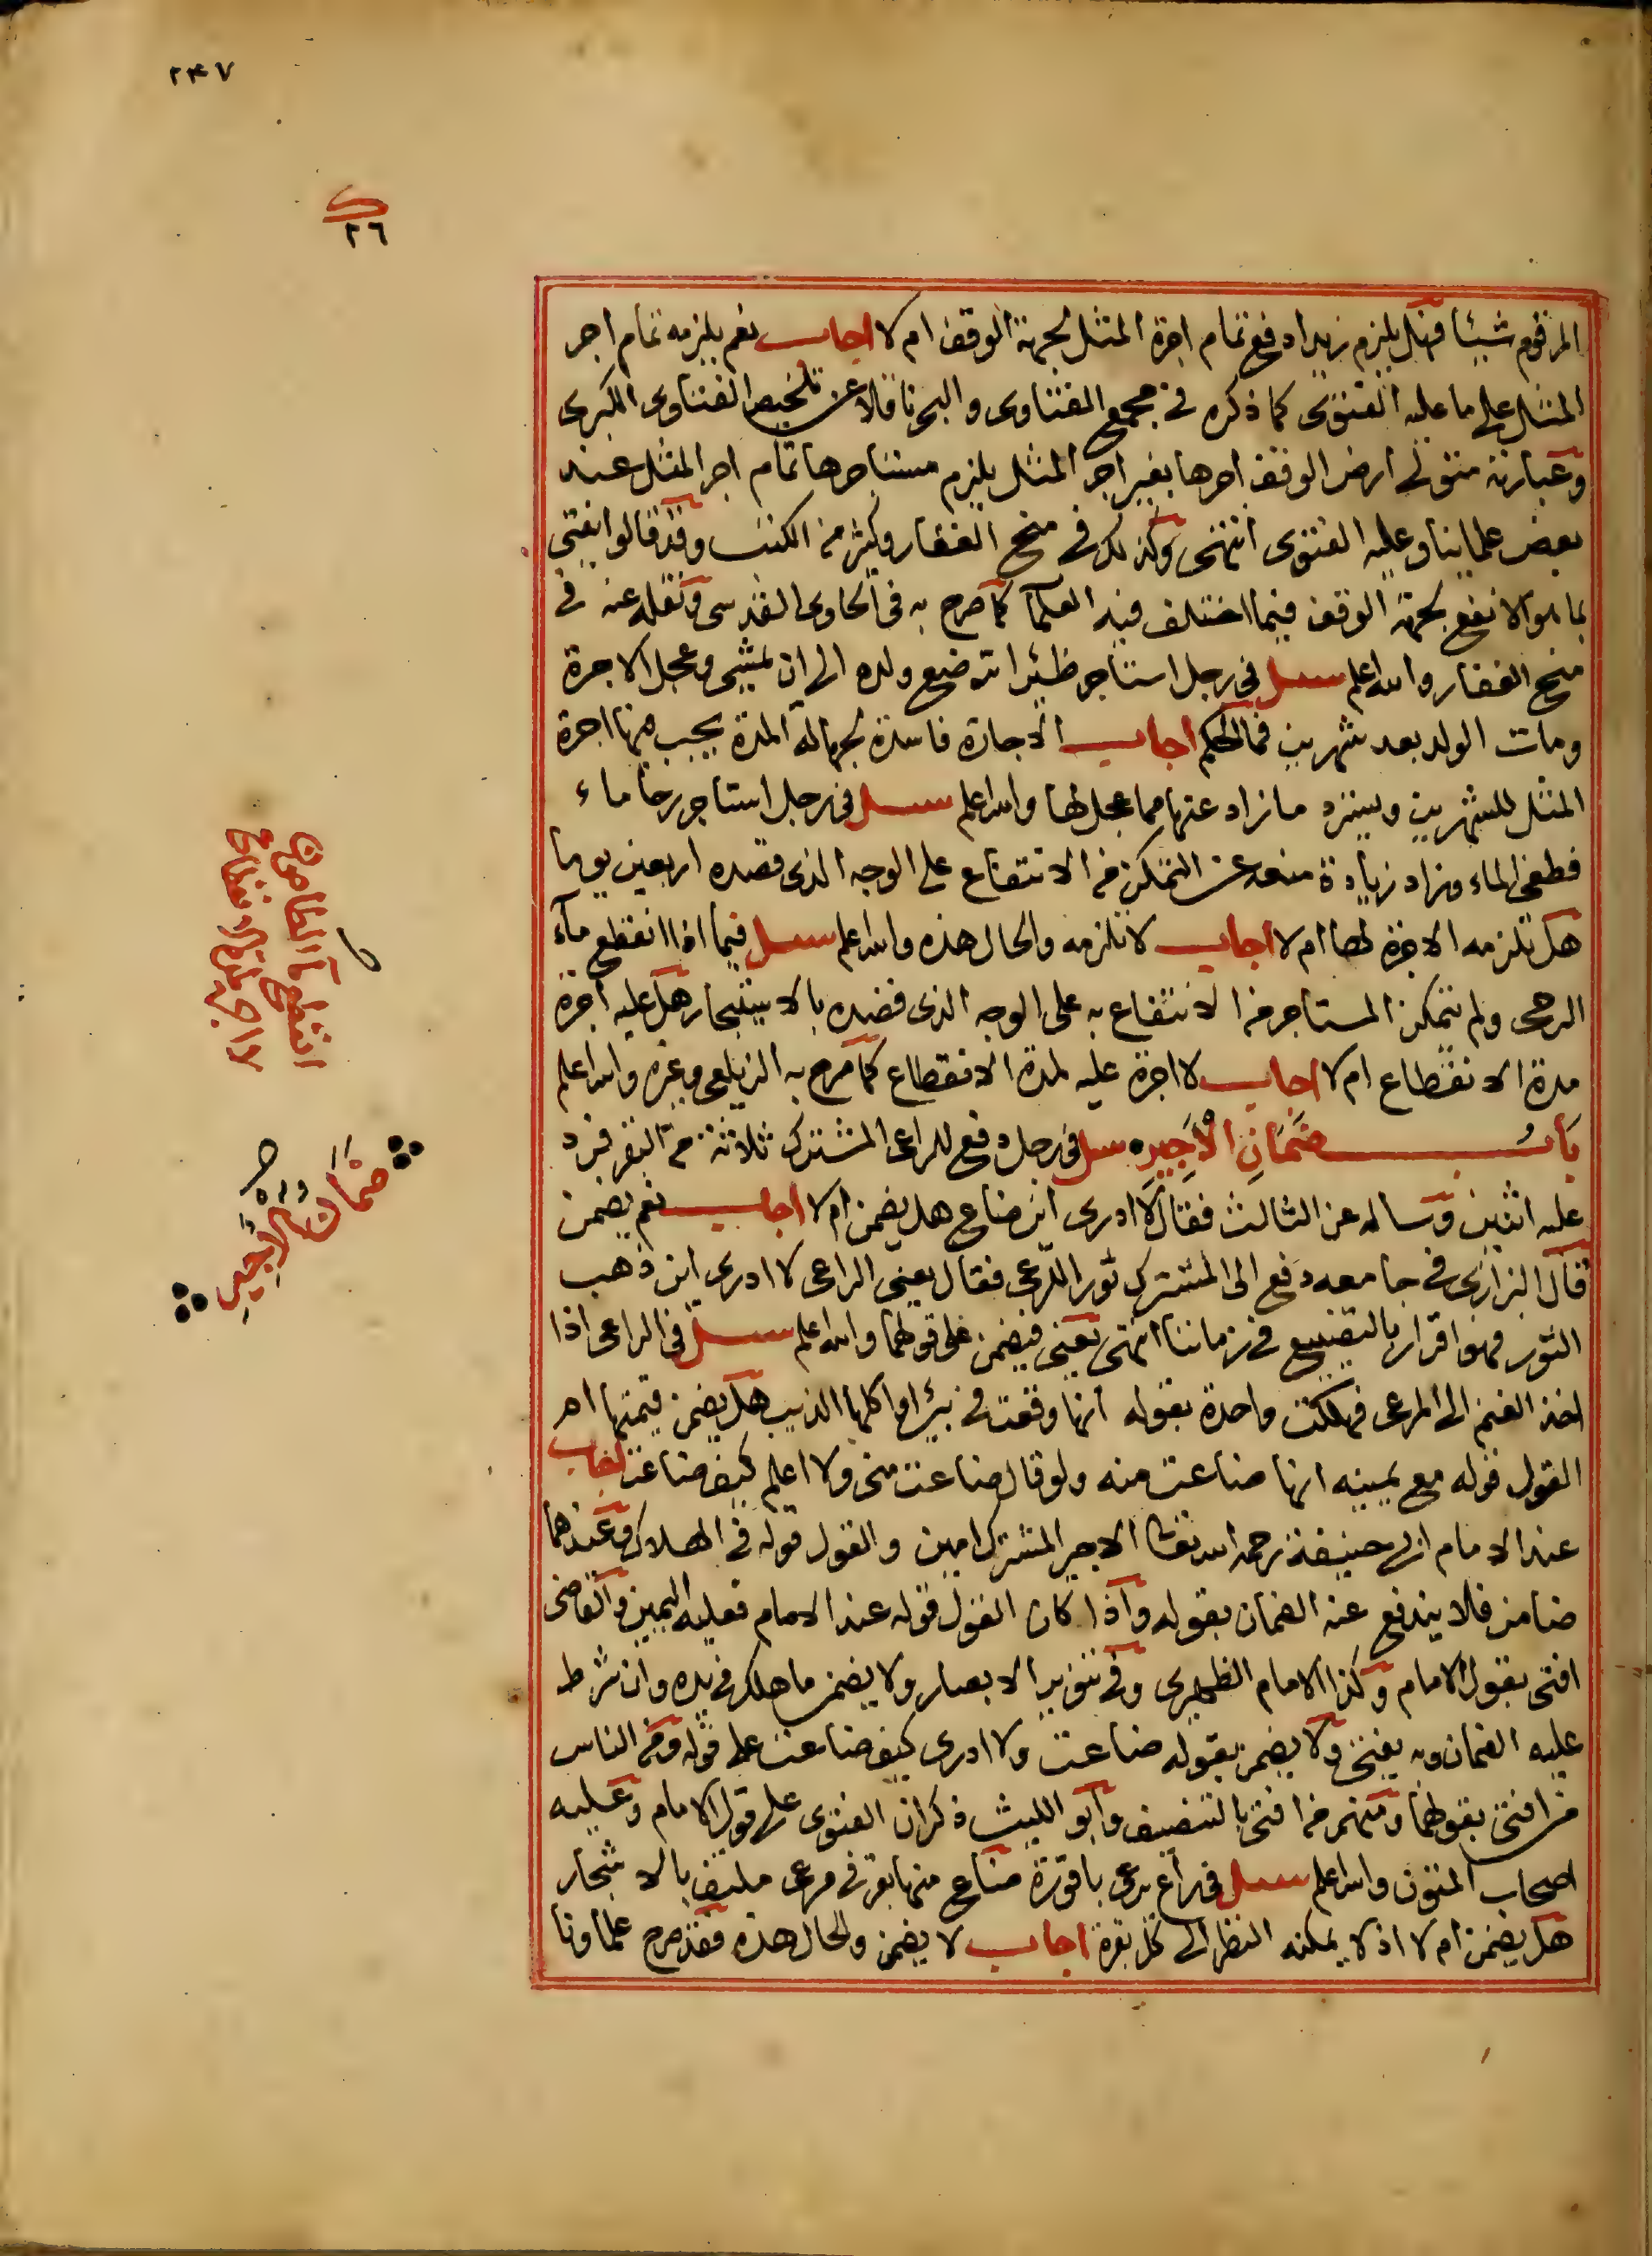 ٢٤٧
٢٦
المرقوم شيئا فهل يلزم زيدا دفع تمام اجرة المثل لجهة الوقف ام لا اجاب نعم يلزمه تمام اجر
المثل على ما عليه الفتوى كما ذكره في مجمع الفتاوى والبحر ناقلا عن تلخيص الفتاوى الكبرى
وعبارته متولى ارض الوقف اجرها بغير اجر المثل يلزم مستاجرها تمام اجر المثل عند
بعض علمائنا وعليه الفتوى انتهى وكذلك في منح الغفار وكثير من الكتب وقد قالوا يفتى
بما هو الانفع لجهة الوقف فيما اختلف فيه العلما كما صرح به في الحاوى القدسى ونقله عنه في
منح الغفار والله اعلم سئل في رجل استاجر ظئرا ترضع ولده الى ان يمشى وعجل الاجرة
ومات الولد بعد شهرين فما الحكم اجاب الاجارة فاسدة لجهالة المدة يجب فيها اجرة
المثل للشهرين ويسترد ما زاد عنها مما عجل لها والله اعلم سئل في رجل استاجر رحا ماء
فطغى الماء وزاد زيادة منعه عن التمكن من الانتفاع على الوجه الذى قصده اربعين يوما
هل تلزمه الاجرة لها ام لا اجاب لا تلزمه والحال هذه والله اعلم سئل فيما اذا انقطع مآء
الرحى ولم يتمكن المستاجر من الانتفاع به على الوجه الذى قصده بالاستيجار هل عليه اجرة
مدة الانقطاع ام لا اجاب لا اجرة عليه لمدة الانقطاع كما صرح به الزيلعى وغيره والله اعلم
باب ضمان الاجير سئل في رجل دفع للراعى المشترك ثلاثة من البقر فرد
عليه اثنين وساله عن الثالث فقال لا ادرى اين ضاع هل يضمن ام لا اجاب نعم يضمن
قال البزازى في جامعه دفع الى المشترك ثورا للرعى فقال يعنى الراعى لا ادرى اين ذهب
الثور فهو اقرار بالتضييع في زماننا انتهى يعنى فيضمن على قولهما والله اعلم سئل في الراعى اذا
اخذ الغنم الى المرعى فهلكت واحدة بقوله انها وقعت في بئر او اكلها الذيب هل يضمن قيمتها ام
القول قوله مع يمينه انها ضاعت منه ولو قال ضاعت منى ولا اعلم كيف ضاعت اجاب
عند الامام ابى حنيفة رحمه الله تعالى الاجير المشترك امين والقول قوله في الهلاك وعندهما
ضامن فلا يندفع عنه الضمان بقوله واذا كان القول قوله عند الامام فعليه اليمين والقاضى
افتى بقول الامام وكذا الامام الظهيرى وفي تنوير الابصار ولا يضمن ما هلك في يده وان شرط
عليه الضمان وبه يفتى ولا يضمن بقوله ضاعت ولا ادرى كيف ضاعت على قوله ومن الناس
من افتى بقولهما ومنهم من افتى بالتنصيف وابو الليث ذكر ان الفتوى على قول الامام وعليه
اصحاب المتون والله اعلم سئل في راع يرعى باقورة ضاع منها بقر في مرعى ملتف بالاشجار
هل يضمن ام لا اذ لا يمكنه النظر الى كل بقرة اجاب لا يضمن والحال هذه فقد صرح علماونا
انقطع مآ الطاحون
ضمان الاجير